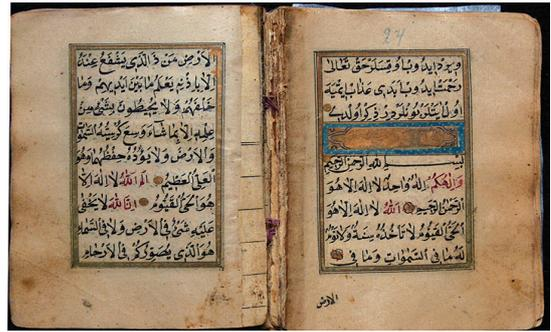 24
حق تعالى
اولدى
بِسْمِ اللهِ الرَّحْمٰنِ الرَّحِيمِ
وَاِلٰهُكُمْ اِلٰهٌ وَاحِدٌ لَا اِلٰهَ اِلَّا هُوَ
الرَّحْمٰنُ الرَّحِيمُ اَللهُ لَا اِلٰهَ اِلَّا هُوَ
الْحَىُّ الْقَيُّومُ لَا تَاْخُذُهُ سِنَةٌ وَلَا نَوْمٌ
لَهُ مَا فِى السَّمٰوَاتِ وَمَا فِى
الارض
الْاَرْضِ مَنْ ذَا الَّذِى يَشْفَعُ عِنْدَهُ
اِلَّا بِاِذْنِهِ يَعْلَمُ مَا بَيْنَ اَيْدِيهِمْ وَمَا
خَلْفَهُمْ وَلَا يُحِيطُونَ بِشَىْءٍ مِنْ
عِلْمِهِ اِلَّا بِمَا شَاءَ وَسِعَ كُرْسِيُّهُ السَّمٰوَاتِ
وَالْاَرْضَ وَلَا يَؤُدُهُ حِفْظُهُمَا وَهُوَ
الْعَلِىُّ الْعَظِيمُ الم اللهُ لَا اِلٰهَ اِلَّا
هُوَ الْحَىُّ الْقَيُّومُ اِنَّ اللهَ لَا يَخْفٰى
عَلَيْهِ شَىْءٌ فِى الْاَرْضِ وَلَا فِى السَّمَاءِ
هُوَ الَّذِى يُصَوِّرُكُمْ فِى الْاَرْحَامِ